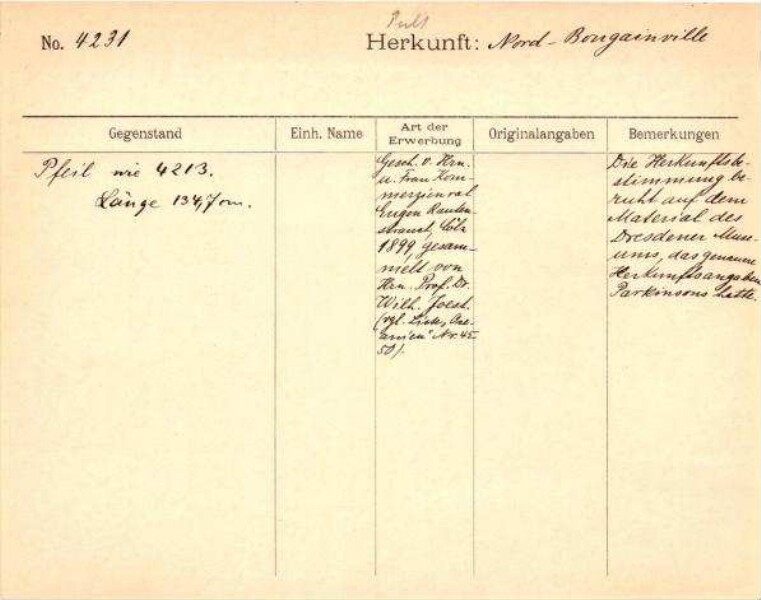 Pult
No. 4231
Herkunft: Nord-Bougainville
Gegenstand
Einh. Name
Art der
Erwerbung
Originalangaben
Bemerkungen
Pfeil wie 4213.
Länge 134,7 cm.
Gesch. v. Hrn.
u. Frau Kom-
merzienrat
Eugen Rauten-
strauch, Cöln
1899, gesam-
melt von
Hrn. Prof. Dr.
Wilh. Joest.
(vgl. Liste "Oze-
anien" Nr. 45-
50).
Die Herkunftsbe-
stimmung be-
ruht auf dem
Material des
Dresdener Muse-
ums, das genauere
Herkunftsangaben
Parkinsons hatte.